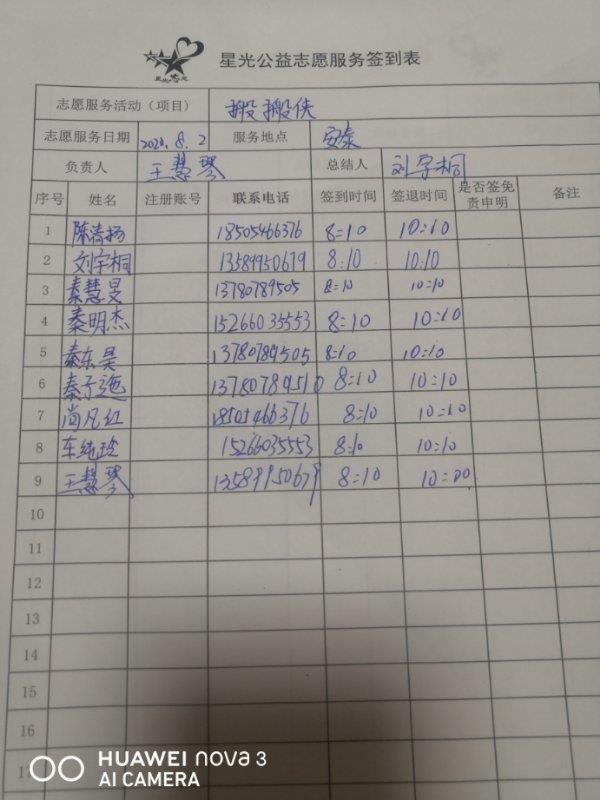 星光公益志愿服务签到表
志愿服务活动（项目） 搬搬侠
志愿服务日期 2020.8.2 服务地点 安泰
负责人 王慧琴 总结人 刘宇桐
序号 姓名 注册账号 联系电话 签到时间 签退时间 是否签免责申明 备注
1 陈清扬 18505466376 8:10 10:10
2 刘宇桐 13589950679 8:10 10:10
3 秦慧旻 13780789505 8:10 10:10
4 秦明杰 15266035553 8:10 10:10
5 秦东昊 13780789505 8:10 10:10
6 秦子迤 13780789510 8:10 10:10
7 尚凡红 18505466376 8:10 10:10
8 车纯玲 15266035553 8:10 10:10
9 王慧琴 13589950679 8:10 10:00
10
11
12
13
14
15
16
HUAWEI nova 3
AI CAMERA